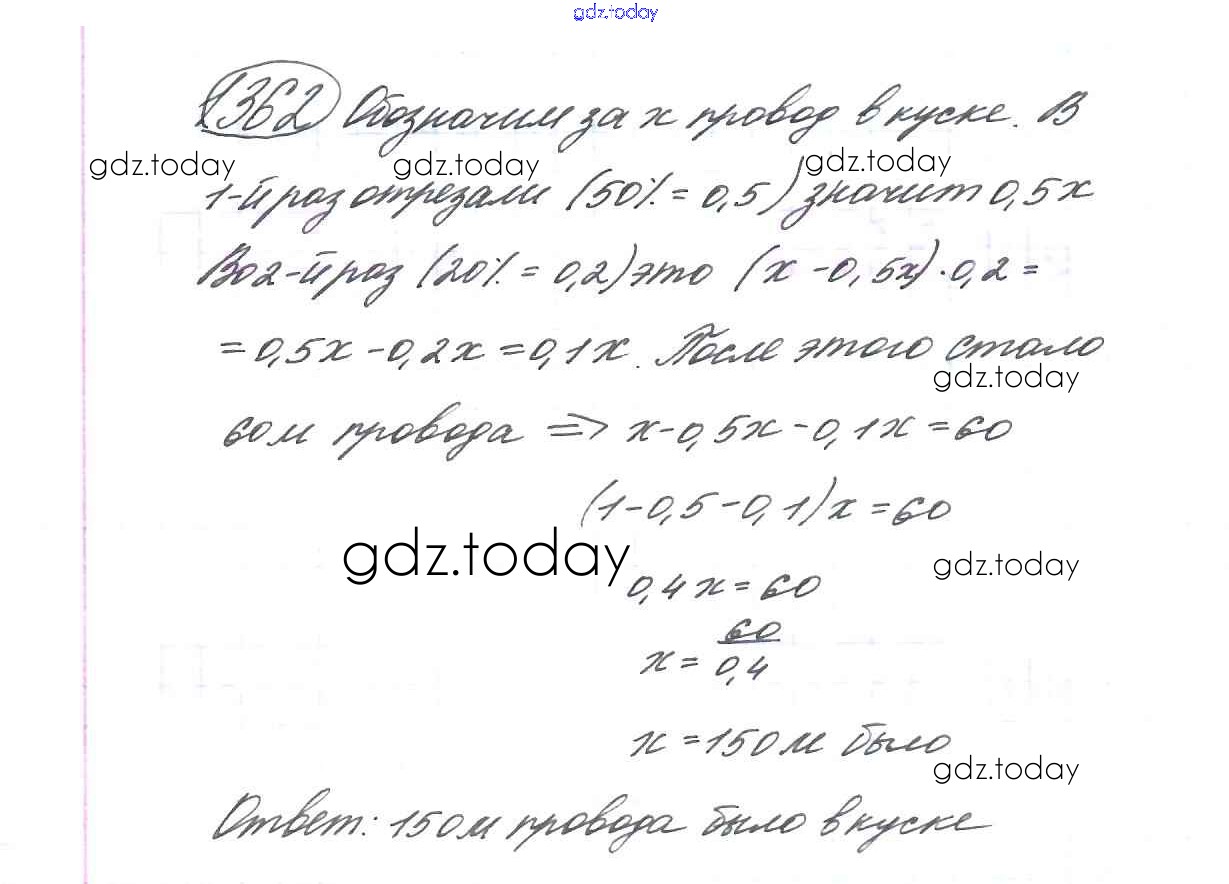 gdz.today
1362 Обозначим за x провод в куске. В
gdz.today gdz.today gdz.today
1-й раз отрезали (50% = 0,5) значит 0,5x
Во 2-й раз (20% = 0,2) это (x - 0,5x) · 0,2 =
= 0,5x - 0,2x = 0,1x. После этого стало
gdz.today
60м провода => x - 0,5x - 0,1x = 60
(1 - 0,5 - 0,1)x = 60
gdz.today gdz.today
0,4x = 60
x = 60/0,4
x = 150м было
gdz.today
Ответ: 150м провода было в куске